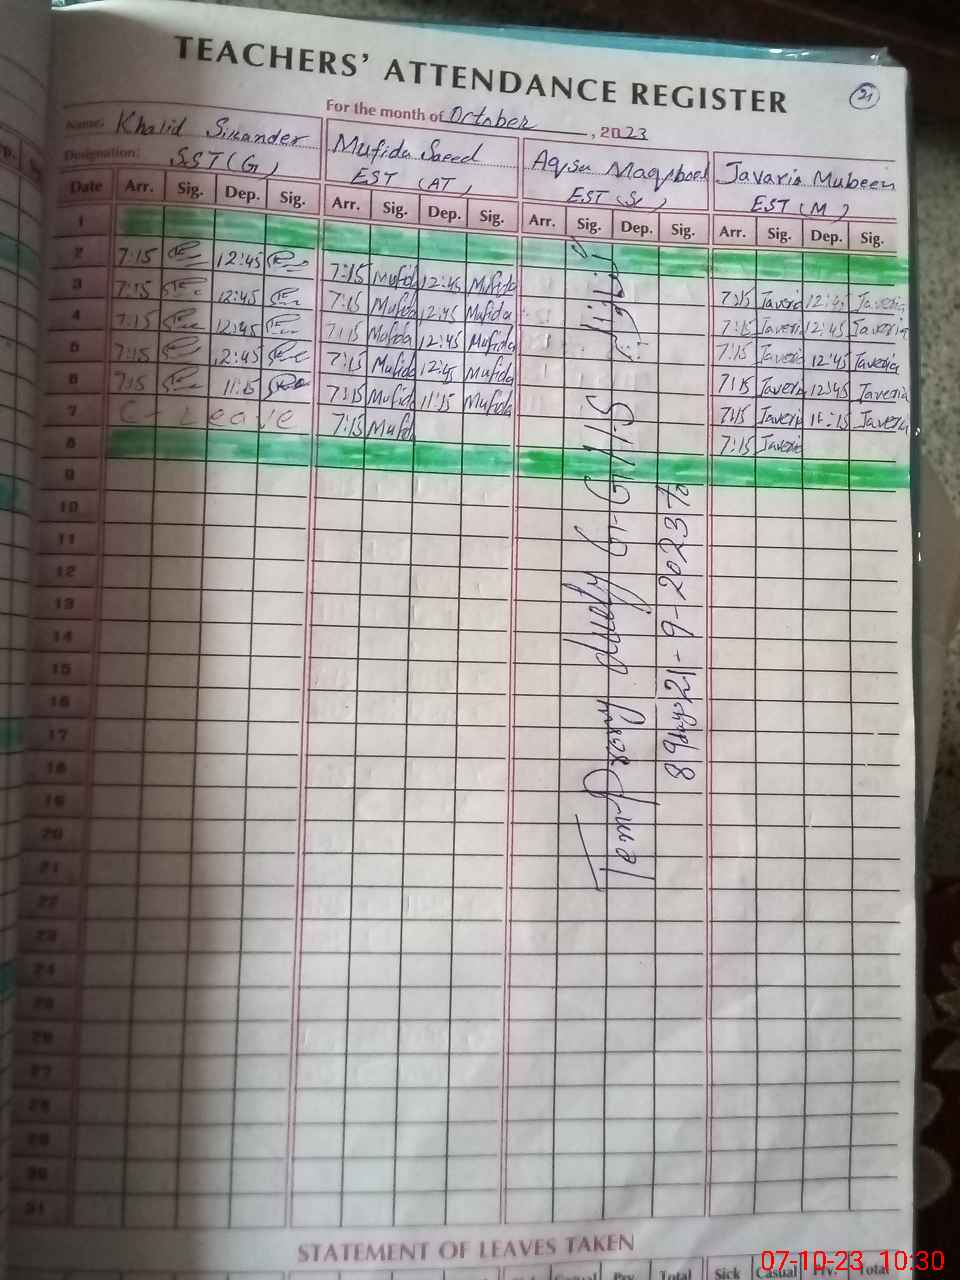 TEACHERS' ATTENDANCE REGISTER
21
For the month of October, 2023
Name: Khalid Sikander Mufida Saeed Aqsa Maqbool Javaria Mubeen
Designation: SST (G) EST (AT) EST (Sc) EST (M)
Date Arr. Sig. Dep. Sig. Arr. Sig. Dep. Sig. Arr. Sig. Dep. Sig. Arr. Sig. Dep. Sig.
1
2 7:15 12:45 7:15 Mufida 12:45 Mufida 7:15 Javeria 12:45 Javeria
3 7:15 12:45 7:15 Mufida 12:45 Mufida 7:15 Javeria 12:45 Javeria
4 7:15 12:45 7:15 Mufida 12:45 Mufida 7:15 Javeria 12:45 Javeria
5 7:15 12:45 7:15 Mufida 12:45 Mufida 7:15 Javeria 12:45 Javeria
6 7:15 11:15 7:15 Mufida 11:15 Mufida 7:15 Javeria 11:15 Javeria
7 C - Leave 7:15 Mufid 7:15 Javeria
8
9
10
11
12
13
14
15
16
17
18
19
20
21
22
23
24
25
26
27
28
29
30
31
Temp-Drary duety G-G/H/S
89 days 21-9-2023 to
STATEMENT OF LEAVES TAKEN
Casual Prv. Total Sick Casual Prv. Total
07-10-23 10:30